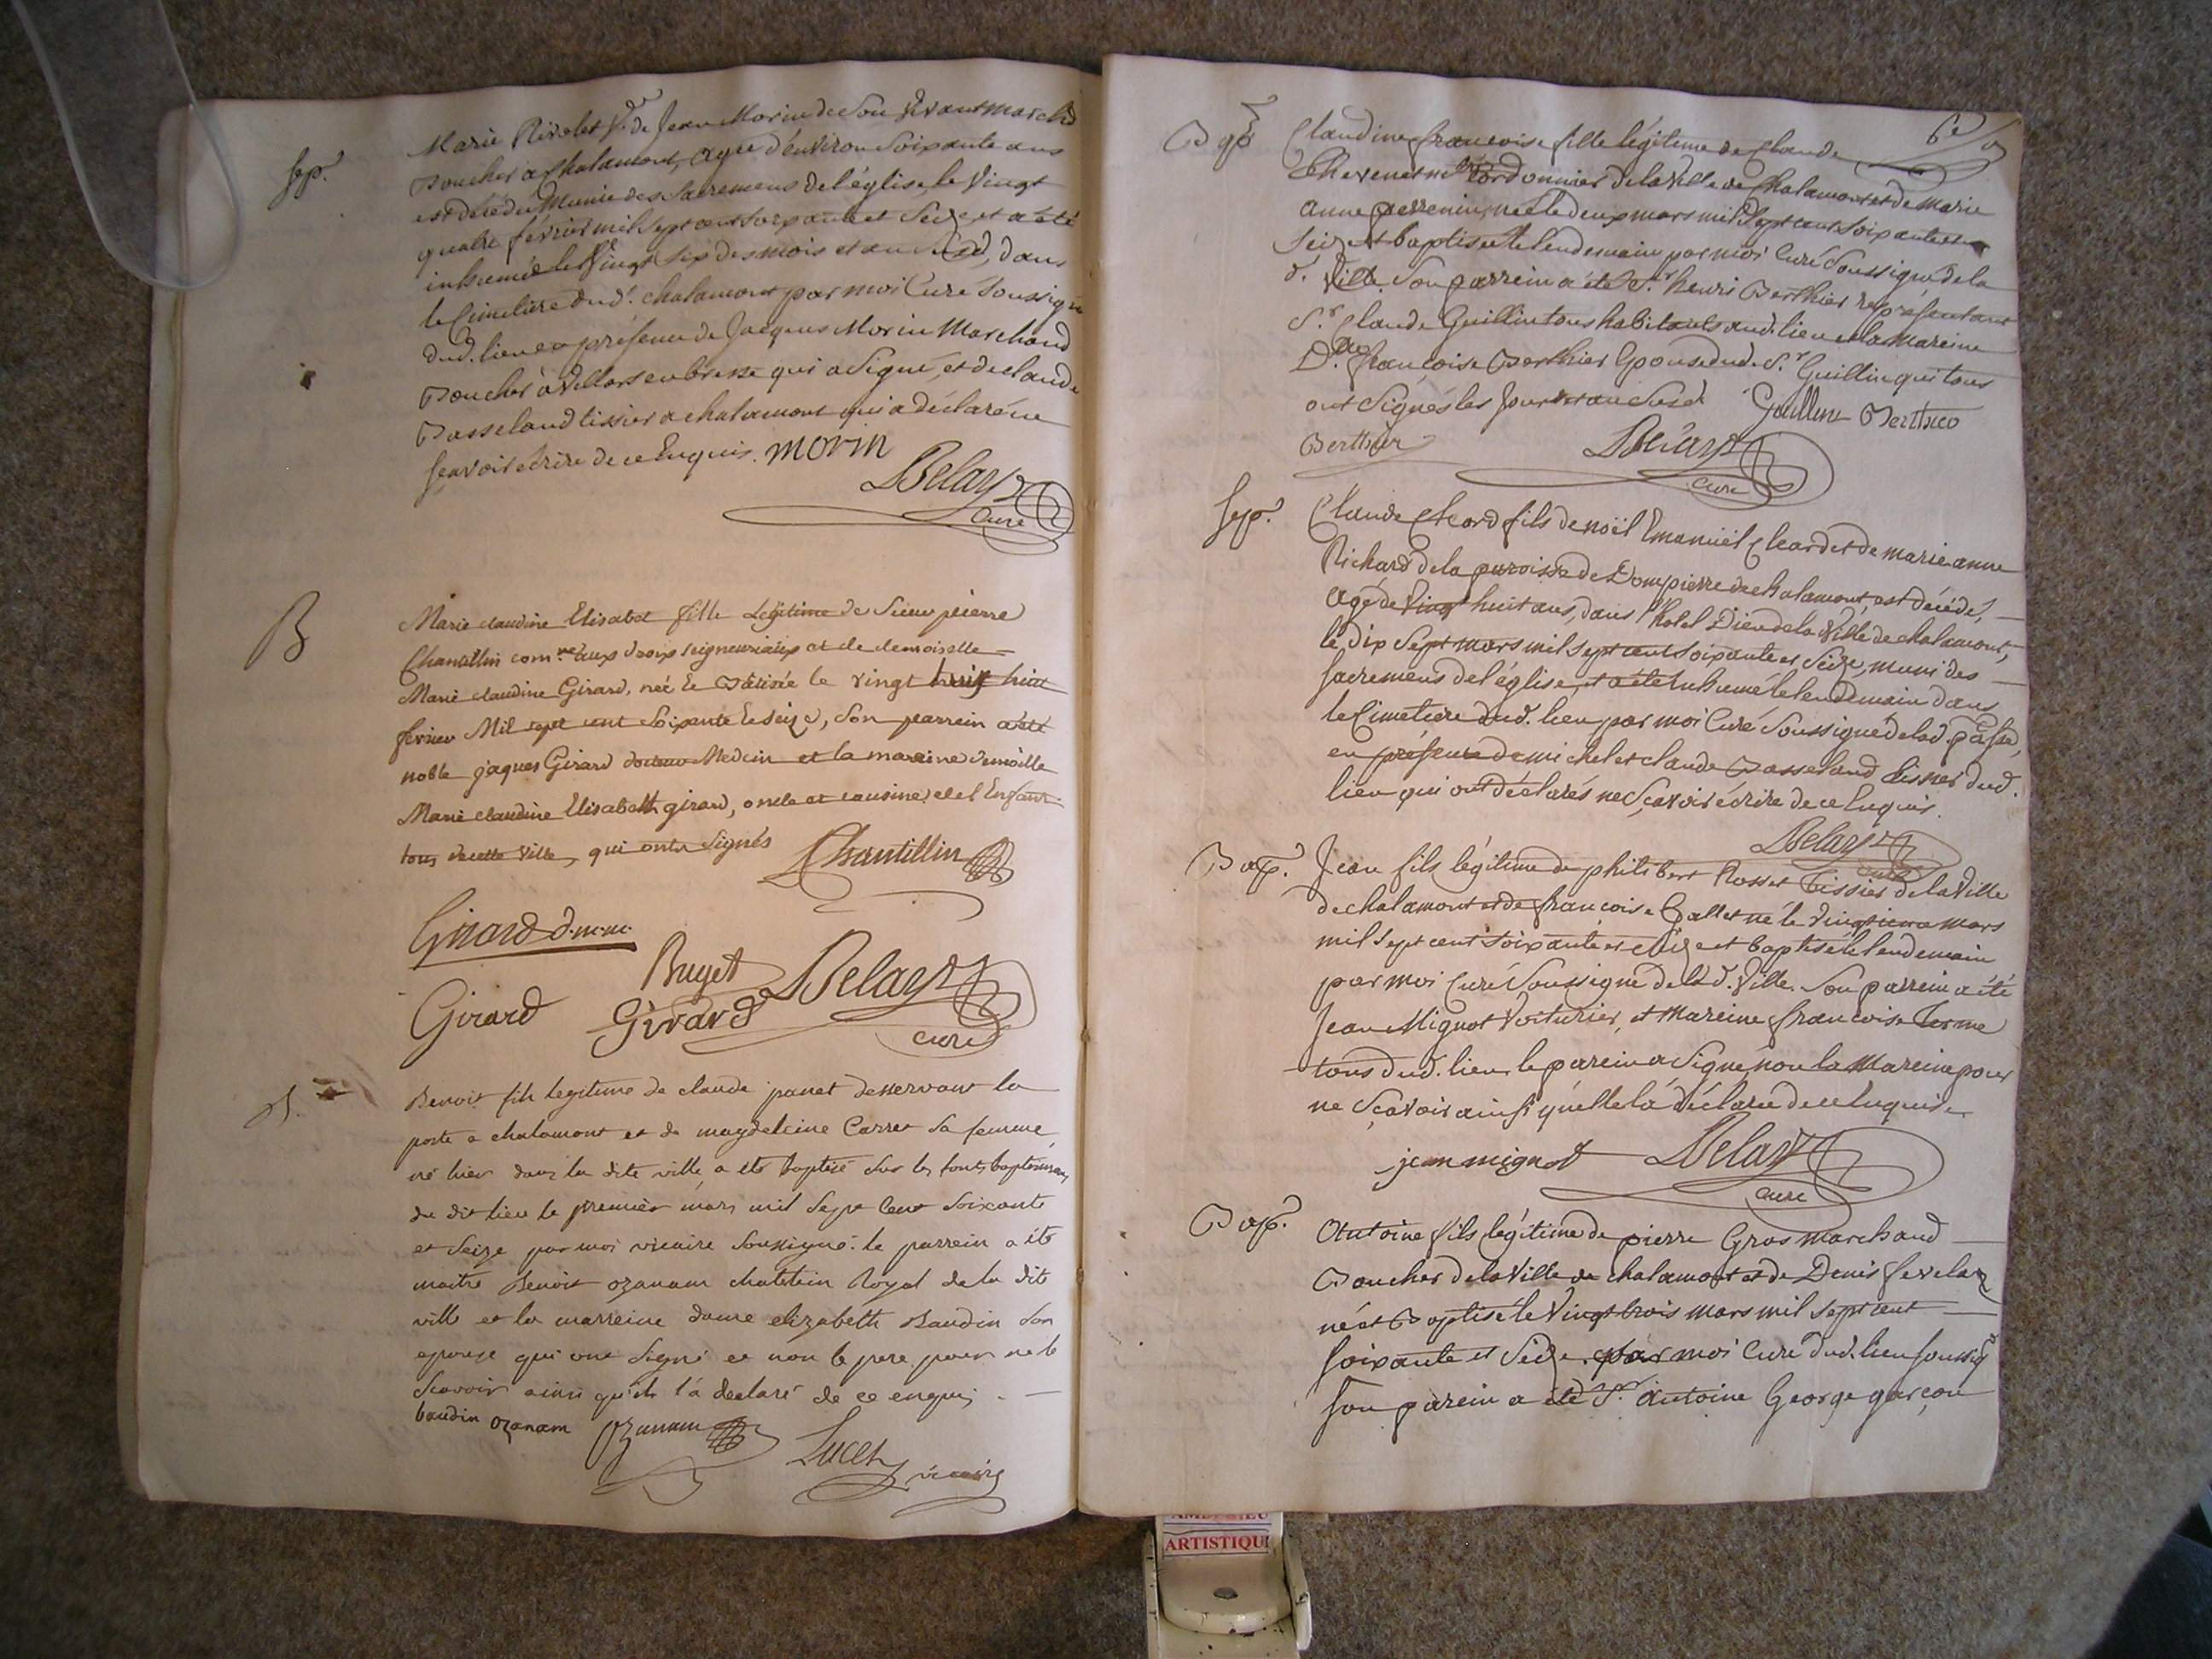 Sep.
Marie Rivolet Ve. de Jean Morin de Son Vivant march.d
Boucher a Chalamont, agée d'environ Soixante ans
est décédée Munie des Sacremens de l'église le Vingt
quatre février mil Sept cent Soixante et Seize et a été
inhumée le Vingt Six des mois et an Susd., dans
le Cimetiere dud.t chalamont par moi Curé Soussigné
dud. lieu en présence de Jacques Morin Marchand
Boucher à Villars en bresse qui a Signé, et de claude
Basseland tissier a chalamont qui a déclaré ne
sçavoir écrire de ce Enquis. morin
Belay
Curé
B
Marie claudine Elisabet fille Legitime de Sieur pierre
Chantillin com.re aux droix seigneuriaux et de demoiselle
Marie claudine Girard, née Et Bâtisée le vingt huit
fevrier Mil sept cent Soixante Et seize, Son parrein a été
noble jaques Girard docteur Medcin et la mareine demoille
Marie claudine Elisabeth girard, oncle et cousine de l'Enfant
tous de cette ville, qui ont Signés Chantillin
Girard d.m.m.
Buget Belay
Girard Girard
curé
B.
Benoit fils legitime de claude panet desservant la
poste a chalamont et de magdeleine Carret Sa femme
né hier dans la dite ville, a été baptisé Sur les fonts baptismaux
du dit lieu le premier mars mil Sept Cent Soixante
et Seize par moi vicaire Soussigné. le parrein a été
maitre Benoit ozanam chatelain Royal de la dite
ville et la marreine dame elizabeth Baudin Son
epouse qui ont Signé et non le pere pour ne le
Scavoir ainsi qu'il l'a declaré de ce enquis. —
baudin ozanam Ozanam
Lucet vicaire
6e
Bap.
Claudine francoise fille légitime de Claude
Chevenet m.tre Cordonnier de la Ville de Chalamont et de Marie
Anne perrenin, née le deux mars mil Sept cent Soixante et
Seize et baptisée le lendemain par moi Curé Soussigné de la
d. Ville. Son parrein a été S.r henri Berthier représentant
S.r Claude Guillin tous habitants aud. lieu et la mareine
D.lle françoise Berthier Epouse dud. S.r Guillin qui tous
ont Signés les jour et an Susd. Guillin Berthier
Berthier Belay
curé
Sep.
Claude Cleard fils de noël Emanuël Cleard et de marie anne
Richard de la paroisse de Dompierre de chalamont, est décédé,
agé de Vingt huit ans, dans l'hotel Dieu de la Ville de chalamont,
le dix Sept mars mil sept cent soixante et Seize, muni des
Sacremens de l'église, et a été Inhumé le lendemain dans
le Cimetiere dud. lieu par moi Curé Soussigné de lad. passe,
en présence de michel et claude Basseland tissier dud.
lieu qui ont déclarés ne Sçavoir écrire de ce Enquis.
Belay
curé
Bap.
Jean fils légitime de philibert Rosset tissier de la Ville
de chalamont et de francoise Gallet né le vingtieme mars
mil Sept cent soixante et Seize et baptisé le lendemain
par moi Curé Soussigné de lad. Ville. Son parrein a été
Jean Mignot Voiturier, et Mareine francoise Terme
tous dud. lieu, le parein a Signé non la Mareine pour
ne Sçavoir ainsi quelle l'a déclaré de ce Enquise.
jean mignot Belay
curé
Bap.
Antoine fils légitime de pierre Gros Marchand
Boucher de la Ville de chalamont et de Denise fevelas
né et Baptisé le Vingt trois mars mil sept cent
soixante et Seize par moi Curé dud. lieu soussigé
son parein a été S.r Antoine George garçon
ARTISTIQU